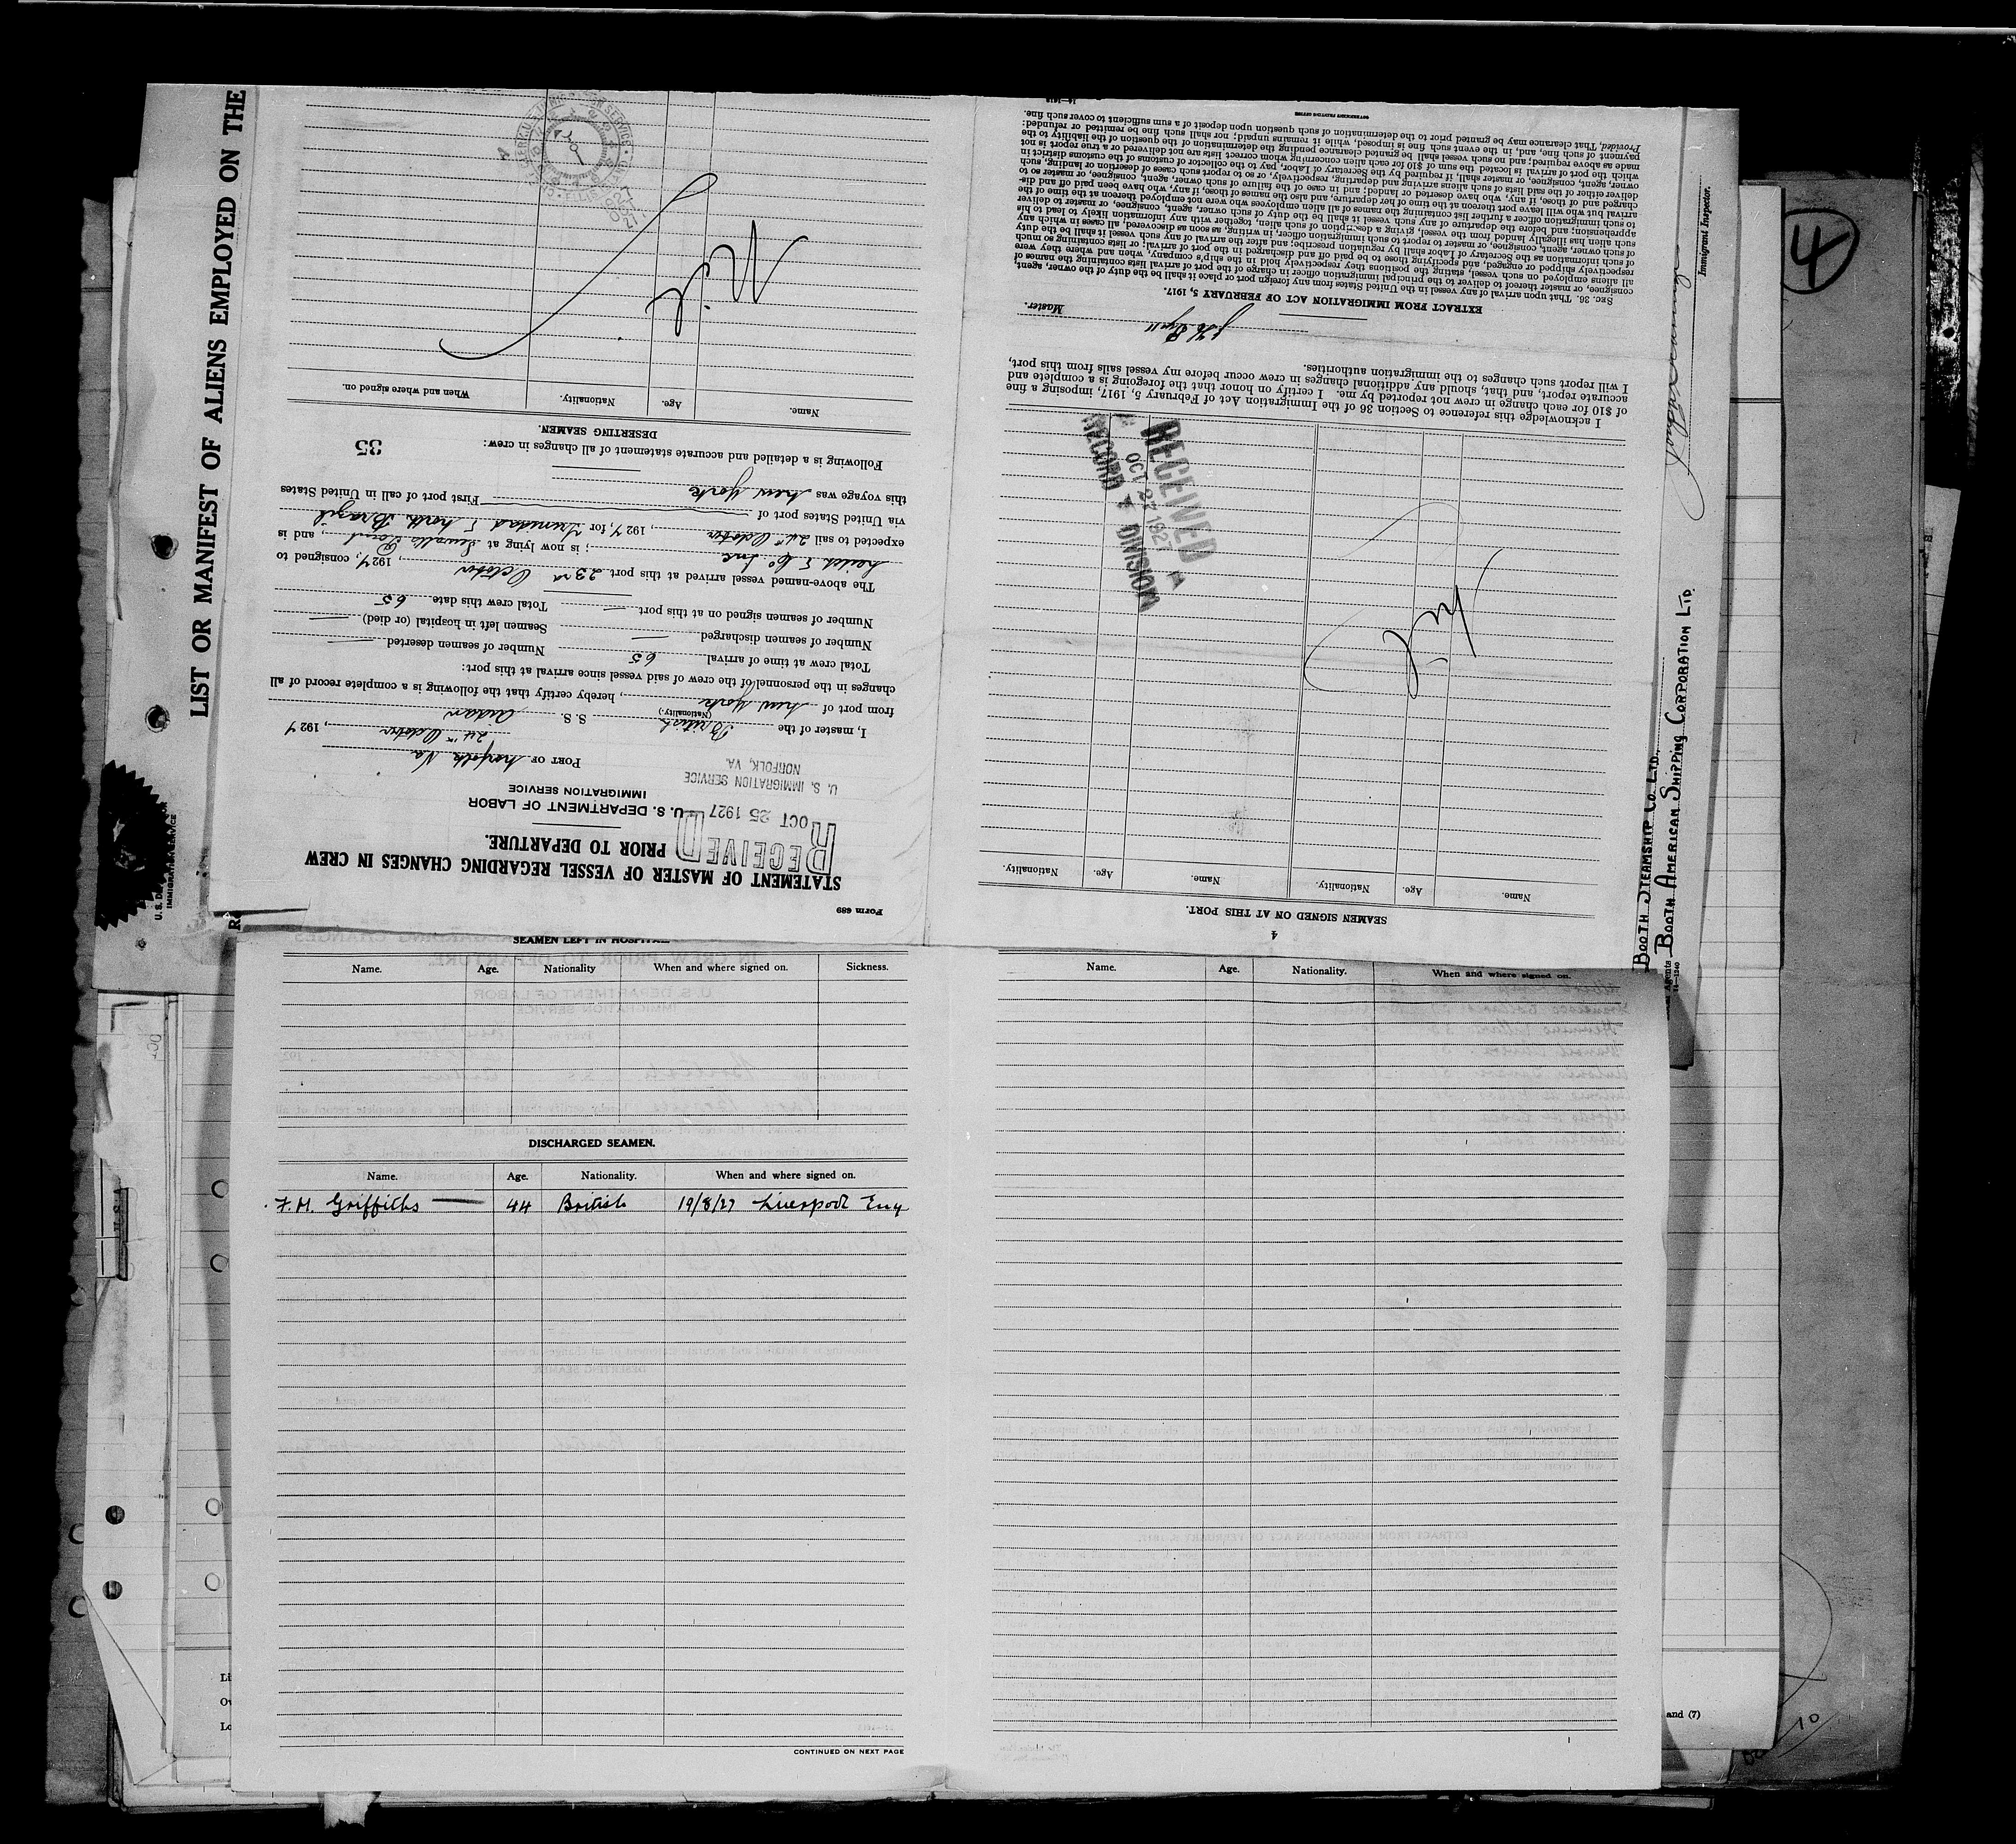 LIST OR MANIFEST OF ALIENS EMPLOYED ON THE
4
Form 689
STATEMENT OF MASTER OF VESSEL REGARDING CHANGES IN CREW
PRIOR TO DEPARTURE.
RECEIVED
OCT 25 1927
U. S. IMMIGRATION SERVICE
NORFOLK, VA.
U. S. DEPARTMENT OF LABOR
IMMIGRATION SERVICE
PORT OF Norfolk Va
24th October, 1927
I, master of the British S. S. Aidan
(Nationality.)
from port of New York, hereby certify that the following is a complete record of all
changes in the personnel of the crew of said vessel since arrival at this port:
Total crew at time of arrival 65 Number of seamen deserted —
Number of seamen discharged — Seamen left in hospital (or died) —
Number of seamen signed on at this port — Total crew this date 65
The above-named vessel arrived at this port 23rd October, 1927, consigned to
& Co Inc; is now lying at Sewells Point, and is
expected to sail 24th October, 1927, for Trinidad & North Brazil
via United States port of
this voyage was New York First port of call in United States
Following is a detailed and accurate statement of all changes in crew:
35
DESERTING SEAMEN.
Name. Age. Nationality. When and where signed on.
Nil
4
SEAMEN SIGNED ON AT THIS PORT.
Name. Age. Nationality. Name. Age. Nationality.
Nil
RECEIVED
OCT 27 1927
RECORD DIVISION
I acknowledge this reference to Section 36 of the Immigration Act of February 5, 1917, imposing a fine
of $10 for each change in crew not reported by me. I certify on honor that the foregoing is a complete and
accurate report, and that, should any additional changes in crew occur before my vessel sails from this port,
I will report such changes to the immigration authorities.
Master.
EXTRACT FROM IMMIGRATION ACT OF FEBRUARY 5, 1917.
SEC. 36. That upon arrival of any vessel in the United States from any foreign port or place it shall be the duty of the owner, agent,
consignee, or master thereof to deliver to the principal immigration officer in charge of the port of arrival lists containing the names of
all aliens employed on such vessel, stating the positions they respectively hold in the ship's company, when and where they were
respectively shipped or engaged, and specifying those to be paid off and discharged in the port of arrival; or lists containing so much
of such information as the Secretary of Labor shall by regulation prescribe; and after the arrival of any such vessel it shall be the duty
of such owner, agent, consignee, or master to report to such immigration officer, in writing, as soon as discovered, all cases in which any
such alien has illegally landed from the vessel, giving a description of such alien, together with any information likely to lead to his
apprehension; and before the departure of any such vessel it shall be the duty of such owner, agent, consignee, or master to deliver
to such immigration officer a further list containing the names of all alien employees who were not employed thereon at the time of the
arrival but who will leave port thereon at the time of her departure, and also the names of those, if any, who have been paid off and dis-
charged and of those, if any, who have deserted or landed; and in case of the failure of such owner, agent, consignee, or master so to
deliver either of the said lists of such aliens arriving and departing, respectively, or so to report such cases of desertion or landing, such
owner, agent, consignee, or master shall, if required by the Secretary of Labor, pay to the collector of customs of the customs district in
which the port of arrival is located the sum of $10 for each alien concerning whom correct lists are not delivered or a true report is not
made as above required; and no such vessel shall be granted clearance pending the determination of the question of the liability to the
payment of such fine, and, in the event such fine is imposed, while it remains unpaid; nor shall such fine be remitted or refunded:
Provided, That clearance may be granted prior to the determination of such question upon deposit of a sum sufficient to cover such fine.
GOVERNMENT PRINTING OFFICE
Immigrant Inspector.
BOOTH STEAMSHIP CO. LTD.,
Agents BOOTH AMERICAN SHIPPING CORPORATION LTD.
14—1240
SEAMEN LEFT IN HOSPITAL
Name. Age. Nationality When and where signed on. Sickness.
DISCHARGED SEAMEN.
Name. Age. Nationality. When and where signed on.
F. H. Griffiths 44 British 19/8/27 Liverpool Eng
CONTINUED ON NEXT PAGE
Name. Age. Nationality. When and where signed on.
and (7)
10